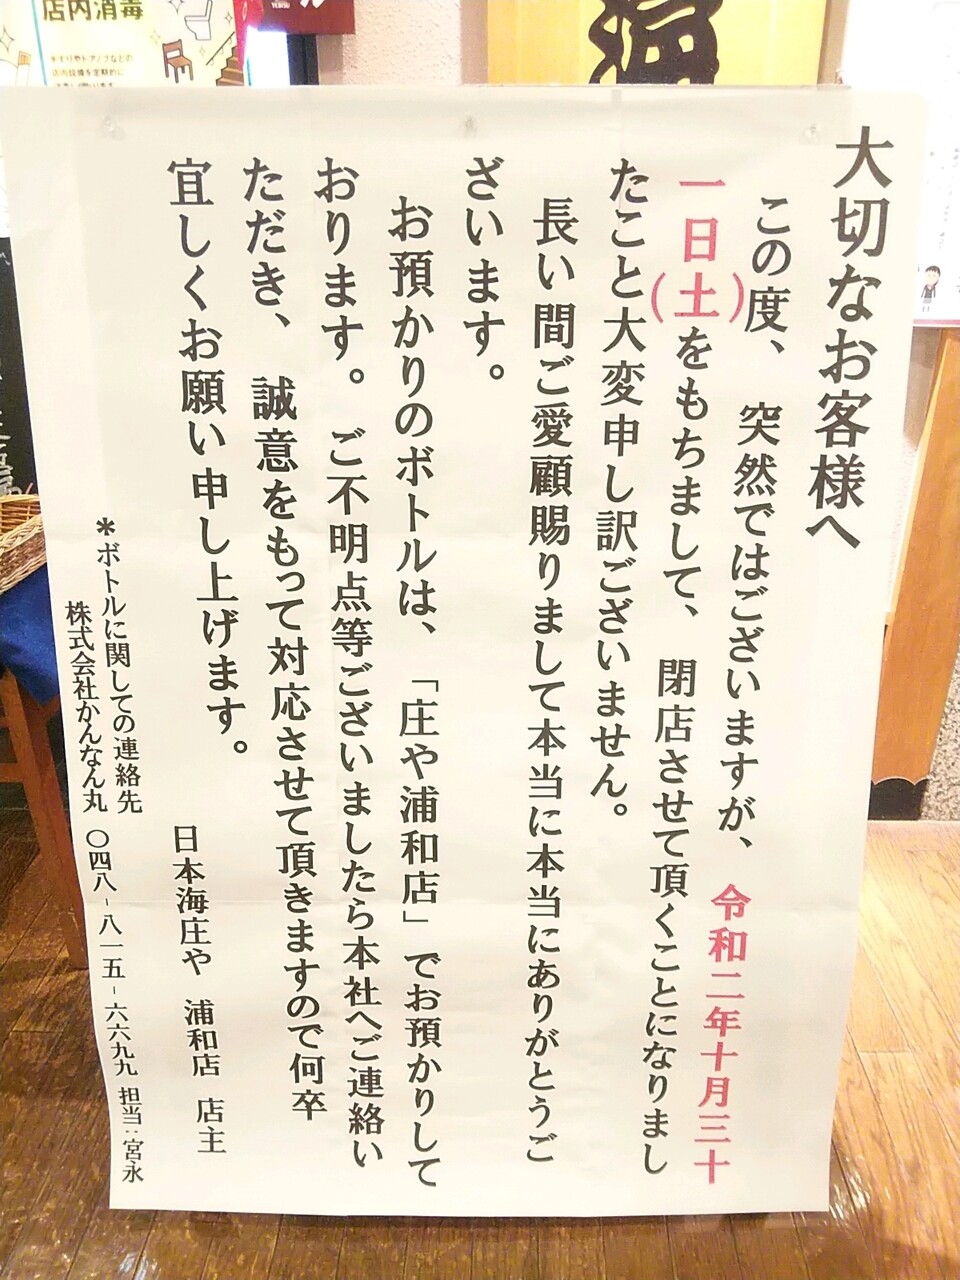 大切なお客様へ
この度、突然ではございますが、令和二年十月三十
一日(土)をもちまして、閉店させて頂くことになりまし
たこと大変申し訳ございません。
長い間ご愛顧賜りまして本当に本当にありがとうご
ざいます。
お預かりのボトルは、「庄や浦和店」でお預かりして
おります。ご不明点等ございましたら本社へご連絡い
ただき、誠意をもって対応させて頂きますので何卒
宜しくお願い申し上げます。
日本海庄や 浦和店 店主
*ボトルに関しての連絡先
株式会社かんなん丸 〇四八-八一五-六六九九 担当:宮永
店内消毒
手すりやドアノブなどの
店内設備を定期的に
海